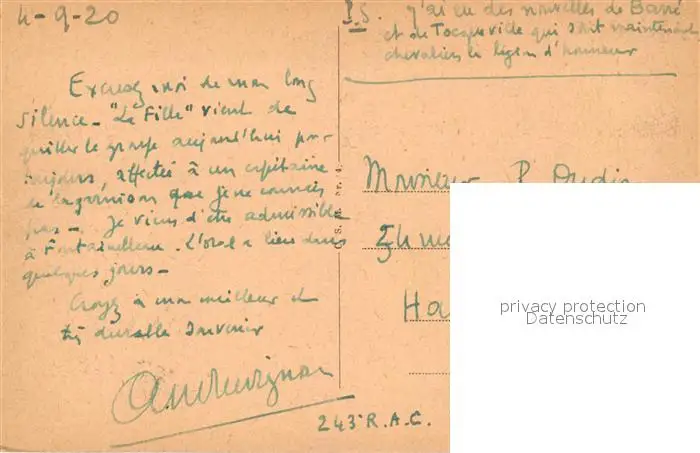 4-9-20
Excusez moi de mon long
silence - "La Fille" vient de
quitter le groupe aujourd'hui pour
toujours, affectée à un capitaine
de la garnison que je ne connais
pas -. Je viens d'être admissible
à Fontainebleau. L'oral a lieu dans
quelques jours -
Croyez à mon meilleur et
très durable souvenir
243 R.A.C.
P.S. J'ai eu des nouvelles de Barré
et de Tocqueville qui sont maintenant
chevaliers de légion d'honneur
Monsieur P.
Ha
privacy protection
Datenschutz